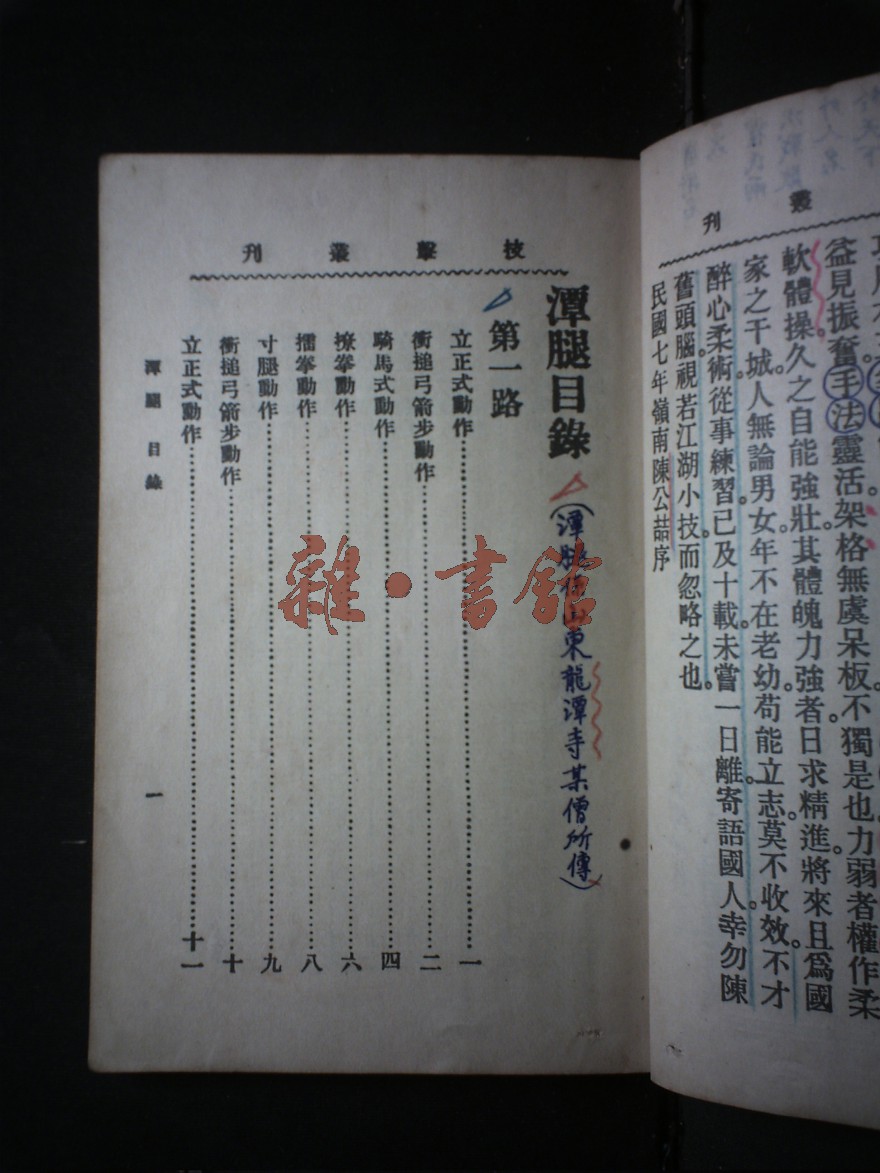 叢刊
益見振奮手法靈活架格無虞呆板。不獨是也力弱者權作柔
軟體操。久之自能強壯其體魄。力強者日求精進。將來且爲國
家之干城。人無論男女年不在老幼。苟能立志莫不收效。不才
醉心柔術。從事練習。已及十載。未嘗一日離。寄語國人幸勿陳
舊頭腦。視若江湖小技。而忽略之也。
民國七年嶺南陳公喆序
技擊叢刊
潭腿目錄
(潭腿山東龍潭寺某僧所傳)
第一路
立正式動作……一
衝搥弓箭步動作……二
騎馬式動作……四
撩拳動作……六
擂拳動作……八
寸腿動作……九
衝搥弓箭步動作……十
立正式動作……十一
潭腿 目錄
一
雜·書館